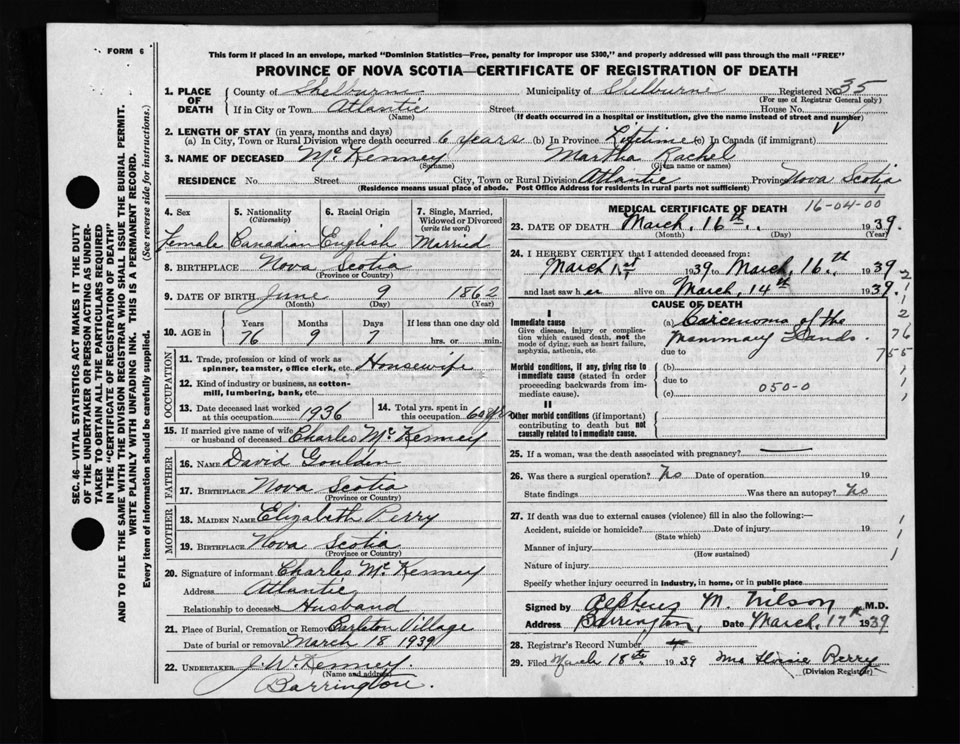 FORM 6
This form if placed in an envelope, marked "Dominion Statistics—Free, penalty for improper use $300," and properly addressed will pass through the mail "FREE"
PROVINCE OF NOVA SCOTIA—CERTIFICATE OF REGISTRATION OF DEATH
1. PLACE OF DEATH
County of Shelburne Municipality of Shelburne Registered No. 35
(For use of Registrar General only)
If in City or Town Atlantic Street House No.
(Name) (If death occurred in a hospital or institution, give the name instead of street and number)
2. LENGTH OF STAY (in years, months and days)
(a) In City, Town or Rural Division where death occurred 6 years (b) In Province Lifetime (c) In Canada (if immigrant)
3. NAME OF DECEASED McKenney Martha Rachel
(Surname) (Given name or names)
RESIDENCE No. Street City, Town or Rural Division Atlantic Province Nova Scotia
(Residence means usual place of abode. Post Office Address for residents in rural parts not sufficient)
4. Sex
Female
5. Nationality
(Citizenship)
Canadian
6. Racial Origin
English
7. Single, Married, Widowed or Divorced
(write the word)
Married
8. BIRTHPLACE Nova Scotia
(Province or Country)
9. DATE OF BIRTH June 9 1862
(Month) (Day) (Year)
10. AGE in
Years Months Days If less than one day old
76 9 7 hrs. or min.
OCCUPATION
11. Trade, profession or kind of work as spinner, teamster, office clerk, etc. Housewife
12. Kind of industry or business, as cotton-mill, lumbering, bank, etc.
13. Date deceased last worked at this occupation 1936
14. Total yrs. spent in this occupation 60 yrs
15. If married give name of wife or husband of deceased Charles McKenney
FATHER
16. NAME David Goulden
17. BIRTHPLACE Nova Scotia
(Province or Country)
MOTHER
18. MAIDEN NAME Elizabeth Perry
19. BIRTHPLACE Nova Scotia
(Province or Country)
20. Signature of informant Charles McKenney
Address Atlantic
Relationship to deceased Husband
21. Place of Burial, Cremation or Removal Carleton Village
Date of burial or removal March 18 1939
22. UNDERTAKER J. W. Kenney.
(Name and address)
Barrington.
MEDICAL CERTIFICATE OF DEATH 16-04-00
23. DATE OF DEATH March 16th 1939.
(Month) (Day) (Year)
24. I HEREBY CERTIFY that I attended deceased from:
March 1st 1939 to March 16th 1939
and last saw her alive on March 14th 1939.
CAUSE OF DEATH
I
Immediate cause
Give disease, injury or complication which caused death, not the mode of dying, such as heart failure, asphyxia, asthenia, etc
(a) Carcenoma of the Mammary Glands.
due to
Morbid conditions, if any, giving rise to immediate cause (stated in order proceeding backwards from immediate cause)
(b)
due to
(c) 050-0
II
Other morbid conditions (if important) contributing to death but not causally related to immediate cause.
25. If a woman, was the death associated with pregnancy?
26. Was there a surgical operation? No Date of operation 19
State findings Was there an autopsy? No
27. If death was due to external causes (violence) fill in also the following:—
Accident, suicide or homicide? Date of injury 19
(State which)
Manner of injury
(How sustained)
Nature of injury
Specify whether injury occurred in industry, in home, or in public place
Signed by M. Wilson M.D.
Address Barrington, Date March 17 1939
28. Registrar's Record Number 4
29. Filed March 18th 1939 Mrs Perry
(Division Registrar)
SEC. 46—VITAL STATISTICS ACT MAKES IT THE DUTY
OF THE UNDERTAKER OR PERSON ACTING AS UNDER-
TAKER TO OBTAIN ALL THE PARTICULARS REQUIRED
IN THE "CERTIFICATE OF REGISTRATION OF DEATH"
AND TO FILE THE SAME WITH THE DIVISION REGISTRAR WHO SHALL ISSUE THE BURIAL PERMIT.
WRITE PLAINLY WITH UNFADING INK. THIS IS A PERMANENT RECORD.
Every item of information should be carefully supplied. (See reverse side for instructions.)